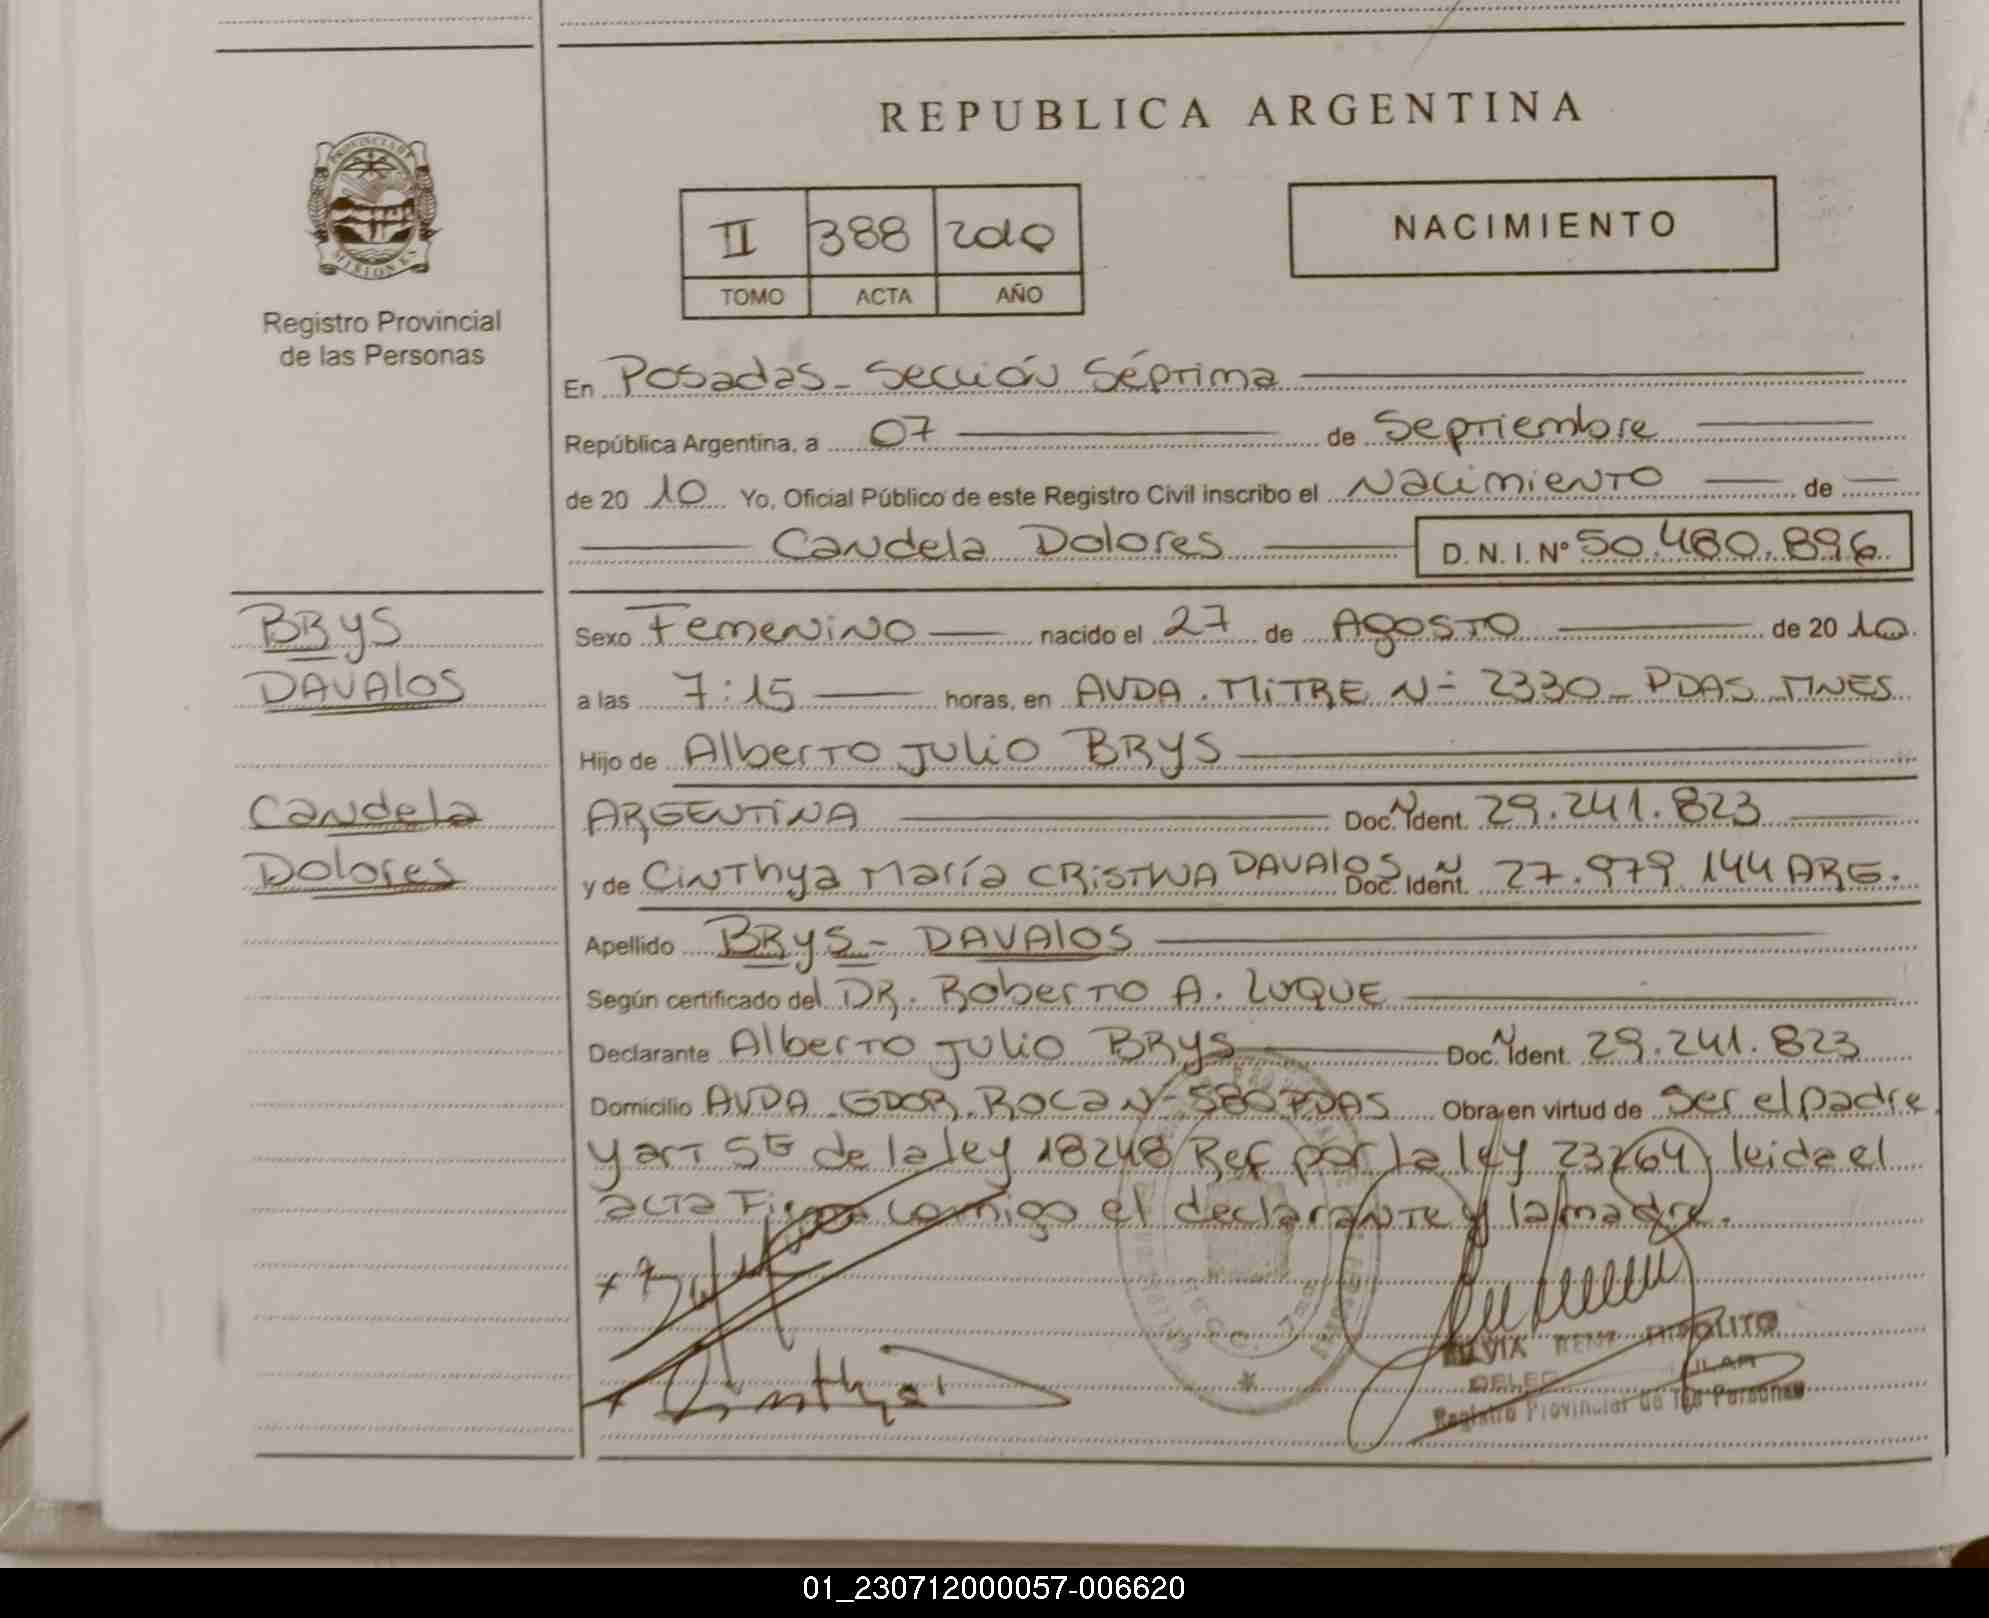 REPUBLICA ARGENTINA
PROVINCIA DE
MISIONES
Registro Provincial
de las Personas
II 388 2010
TOMO ACTA AÑO
NACIMIENTO
En Posadas - Sección Séptima
República Argentina, a 07 de Septiembre
de 20 10 Yo, Oficial Público de este Registro Civil inscribo el Nacimiento de
Candela Dolores D. N. I. Nº 50.480.896
BRYS
DAVALOS
Candela
Dolores
Sexo Femenino nacido el 27 de Agosto de 20 10
a las 7:15 horas, en AVDA. MITRE N- 2330 - PDAS MNES
Hijo de Alberto Julio BRYS
ARGENTINA Doc. N Ident. 29.241.823
y de Cinthya María CRISTINA DAVALOS Doc. N Ident. 27.979 144 ARG.
Apellido BRYS - DAVALOS
Según certificado del DR. Roberto A. LUQUE
Declarante Alberto Julio BRYS Doc. N Ident. 29.241.823
Domicilio AVDA GDOR. ROCA N- 580 PDAS Obra en virtud de ser el padre
y art 5to de la ley 18248 Ref por la ley 23264, leida el
acta Firma conmigo el declarante y la madre.
Cinthya
Registro Provincial de las Personas
01_230712000057-006620